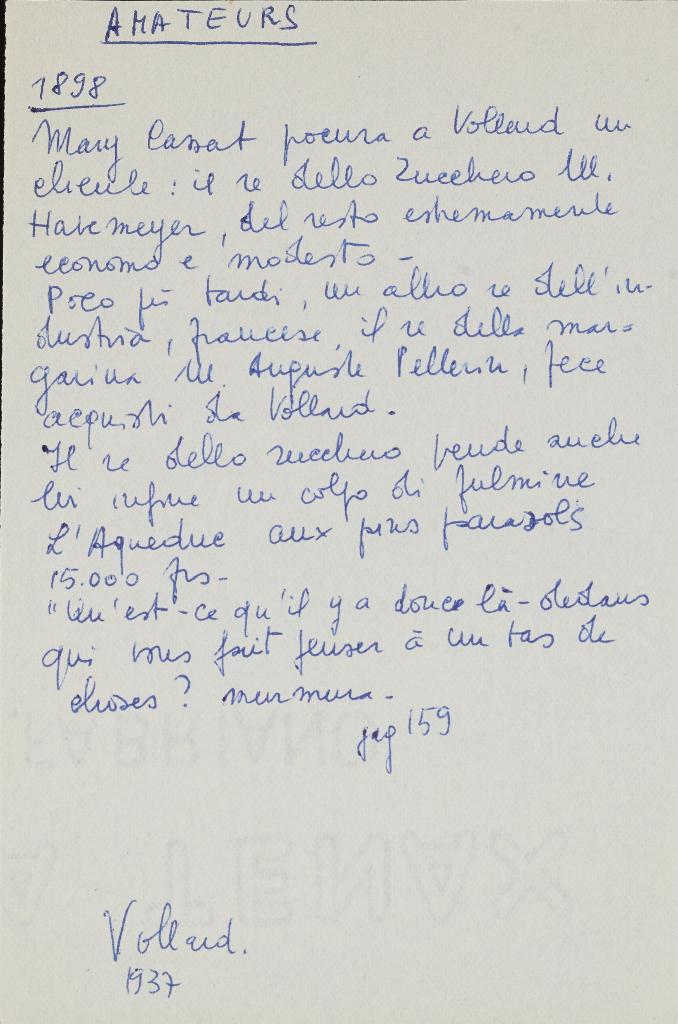 AMATEURS
1898
Mary Cassat procura a Vollard un
cliente: il re dello Zucchero M.
Havemeyer, del resto estremamente
economo e modesto -
Poco più tardi, un altro re dell'in-
dustria, francese, il re della mar=
garina M. Auguste Pellerin, fece
acquisti da Vollard.
Il re dello zucchero prende anche
lui infine un colpo di fulmine
L'Aqueduc aux pins parasols
15.000 frs-
"Qu'est-ce qu'il y a donc là-dedans
qui vous fait penser à un tas de
choses? murmura-
pag 159
Vollard.
1937
FABRIANO
A TENAX